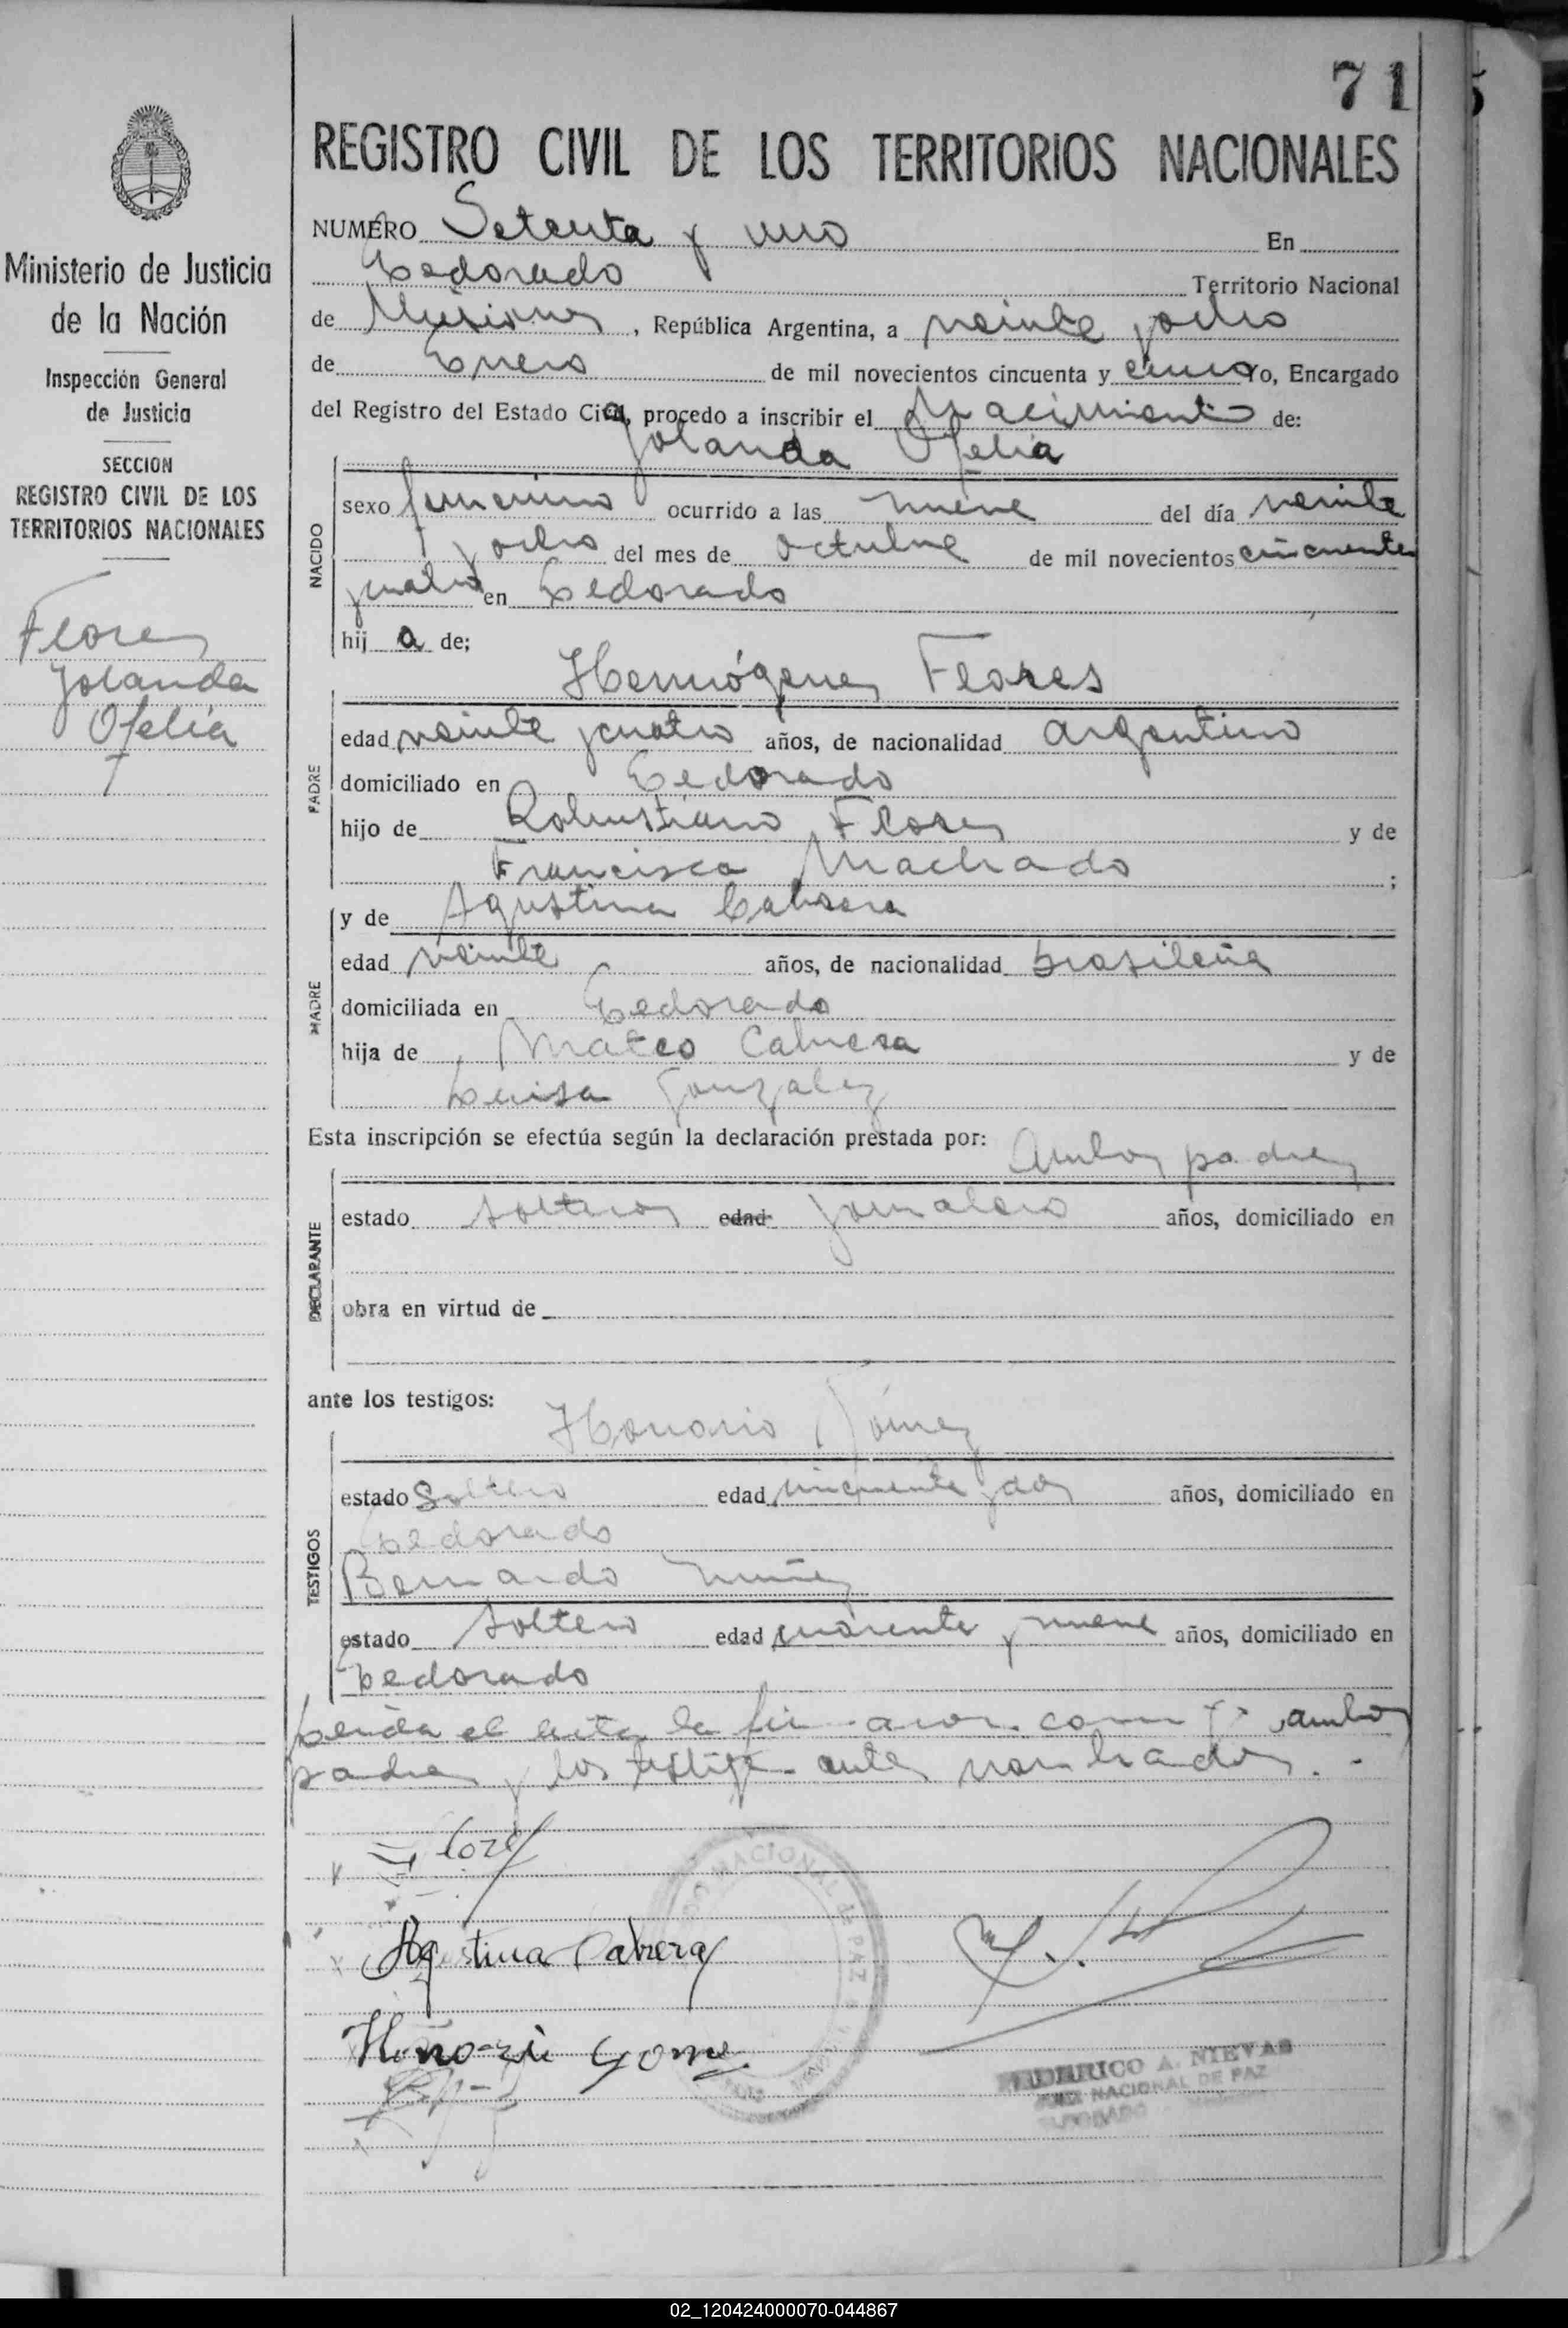 71
REGISTRO CIVIL DE LOS TERRITORIOS NACIONALES
Ministerio de Justicia
de la Nación
Inspección General
de Justicia
SECCION
REGISTRO CIVIL DE LOS
TERRITORIOS NACIONALES
Flores
Yolanda
Ofelia
NUMERO Setenta y uno En
Eldorado Territorio Nacional
de Misiones, República Argentina, a veinte y ocho
de Enero de mil novecientos cincuenta y cinco Yo, Encargado
del Registro del Estado Civil, procedo a inscribir el Nacimiento de:
Yolanda Ofelia
NACIDO
sexo femenino ocurrido a las nueve del día veinte
y ocho del mes de octubre de mil novecientos cincuenta
y cuatro en Eldorado
hij a de;
Hermógenes Flores
PADRE
edad veinte y cuatro años, de nacionalidad argentino
domiciliado en Eldorado
hijo de Robustiano Flores y de
Francisca Machado ;
y de Agustina Cabrera
MADRE
edad veinte años, de nacionalidad brasileña
domiciliada en Eldorado
hija de Mateo Cabrera y de
Luisa Gonzalez
Esta inscripción se efectúa según la declaración prestada por: Ambos padres
DECLARANTE
estado solteros edad jornalero años, domiciliado en
obra en virtud de
ante los testigos:
Honorio Gómez
TESTIGOS
estado Soltero edad cincuenta y dos años, domiciliado en
Eldorado
Bernardo Nuñez
estado soltero edad cuarenta y nueve años, domiciliado en
Eldorado
Leida el acta la firmaron conmigo ambos
padres y los testigos antes nombrados. -
Agustina Cabrera
Honorio Gome
FEDERICO A. NIEVAS
JUEZ NACIONAL DE PAZ
ELDORADO
02_120424000070-044867